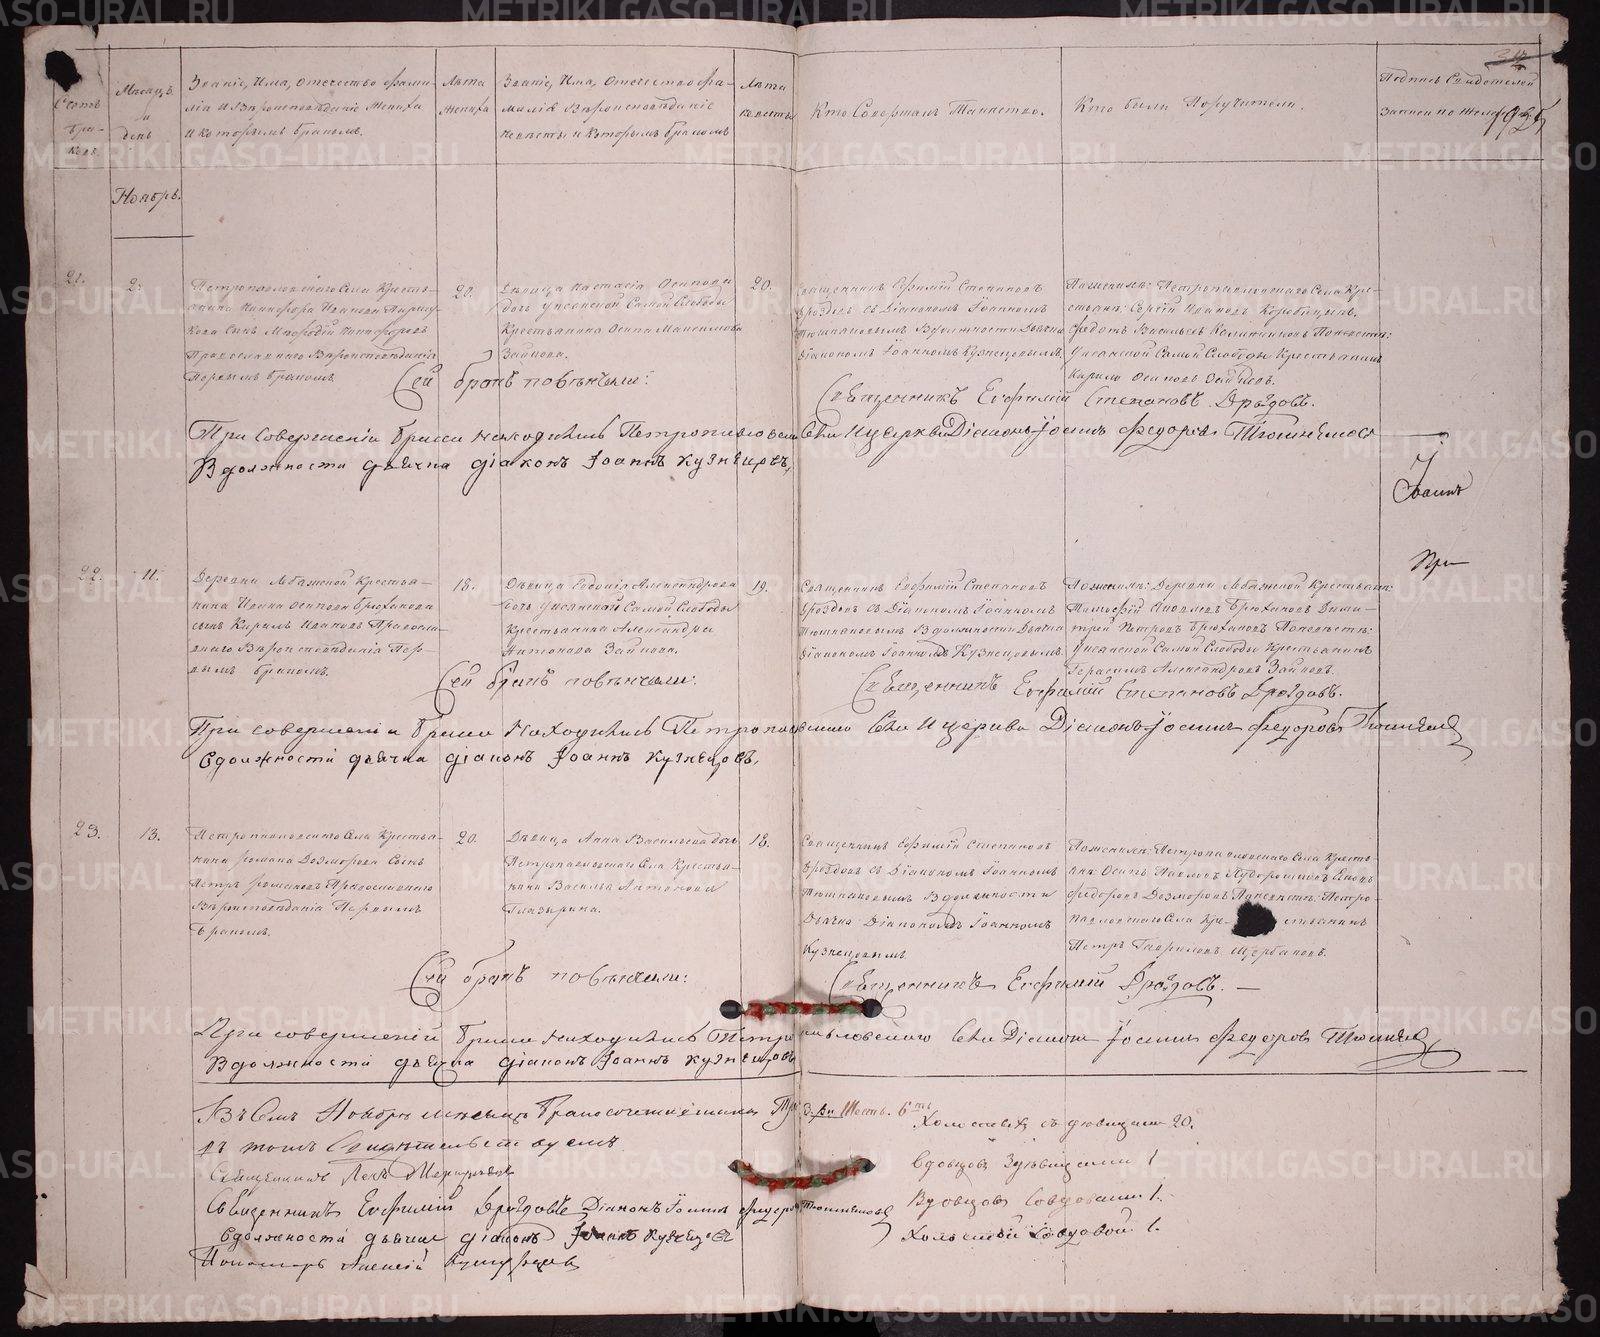 Счетъ бра-
ковъ.
Мѣсяцъ
и
день
Званіе, Имя, отечество фами-
лія и Вѣроисповѣданіе Жениха
и которымъ бракомъ.
Лѣта
жениха
Званіе, Имя, Отечество фа-
милія Вѣроисповѣданіе
невѣсты и которымъ бракомъ
Лѣта
невѣсты
Кто Совершалъ Таинство.
Кто были Поручители.
Подпись Свидетелей
Записи по Жела
Ноябрь.
21.
2.
Петропавловскаго Села Кресть-
янина Никифора Иванова
сынъ Мефодій Никифоровъ
Православнаго Вѣроисповѣданія
Первымъ бракомъ.
20.
Дѣвица Настасія Осипова
дочь Уксянской Самой Слободы
Крестьянина Осипа Максимова
Зайкова.
20.
Священникъ Евфимій Степановъ
Дроздовъ съ Діакономъ Іоанномъ
Тюшняковымъ В должности Дьячка
Діакономъ Іоанномъ Кузнецовымъ.
По женихѣ: Петропавловскаго Села Кре-
стьян: Сергій Ивановъ Коробицынъ.
Федотъ Васильевъ Калашниковъ По невѣстѣ:
Уксянской Самой Слободы Крестьянинъ
Кирило Осиповъ Зайковъ.
Сей бракъ повѣнчали:
Священникъ Евфимій Степановъ Дроздовъ.
При Совершеніи брака находились Петропавловской Села Церкви Діаконъ Іоаннъ Федоровъ Тюшняковъ
В должности дьячка діаконъ Іоаннъ Кузнецовъ,
Іоаннъ
При
22.
11.
Деревни Крестья-
нина Ивана Осипова Брюханова
сынъ Кирилъ Ивановъ Правосла-
внаго Вѣроисповѣданія Пер-
вымъ бракомъ.
18.
Дѣвица Евдокія Александрова
дочь Уксянской Самой Слободы
Крестьянина Александра
Антонова Зайкова.
19.
Священникъ Евфимій Степановъ
Дроздовъ съ Діакономъ Іоанномъ
Тюшняковымъ В должности Дьячка
Діакономъ Іоанномъ Кузнецовымъ.
По женихѣ: Деревни Крестьянин:
Тимофій Яковлевъ Брюхановъ Дими-
трій Петровъ Брюхановъ По невѣстѣ:
Уксянской Самой Слободы Крестьянинъ
Герасимъ Александровъ Зайковъ.
Сей бракъ повѣнчали:
Священникъ Евфимій Степановъ Дроздовъ.
При совершеніи брака Находились Петропавловского Села Церкви Діаконъ Іоаннъ Федоровъ Тюшняковъ
В должности дьячка діаконъ Іоаннъ Кузнецовъ,
23.
13.
Петропавловскаго Села Крестья-
нина Романа Дозморова Сынъ
Петръ Романовъ Православнаго
Вѣроисповѣданія Первымъ
бракомъ.
20.
Дѣвица Анна Васильева дочь
Петропавловскаго Села Крестья-
нина Василья Антонова
Глазырина.
18.
Священникъ Евфимій Степановъ
Дроздовъ съ Діакономъ Іоанномъ
Тюшняковымъ В должности
Дьячка Діакономъ Іоанномъ
Кузнецовымъ
По женихѣ: Петропавловскаго Села Кресть-
яне Осипъ Павловъ
Федоровъ Дозморовъ По невѣстѣ: Петро-
павловскаго Села Кре- стьянинъ
Петръ Гавриловъ Щербаковъ.
Сей бракъ повѣнчали:
Священникъ Евфимій Дроздовъ.
При совершеніи брака находились Петропавловского Села Діаконъ Іоаннъ Федоровъ Тюшняковъ
В должности дьячка діаконъ Іоаннъ Кузнецовъ
Въ Семъ Ноябрѣ мѣсяцѣ 6
въ томъ Свидѣтельствуемъ
Священникъ
Священникъ Евфимій Дроздовъ Діаконъ Іоаннъ Федоровъ Тюшняковъ
В должности дьячка діаконъ Іоаннъ Кузнецовъ
Пономарь Алексій
Холостыхъ съ дѣвицами 20.
Вдовцовъ Здѣвицами 1
Вдовцовъ Совдовами 1.
Холостой Совдовой. 1.
METRIKI.GASO-URAL.RU